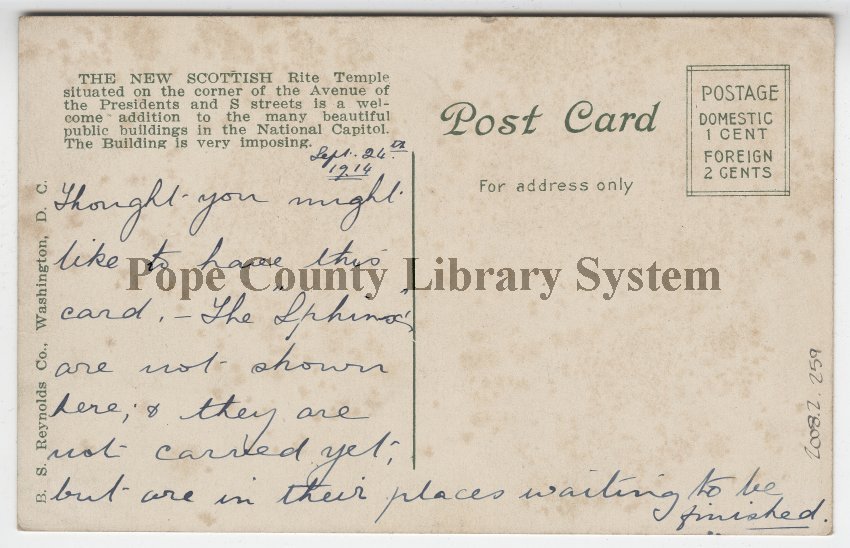 THE NEW SCOTTISH Rite Temple
situated on the corner of the Avenue of
the Presidents and S streets is a wel-
come addition to the many beautiful
public buildings in the National Capitol.
The Building is very imposing.
Sept. 24th
1914
Thought you might
like to have this
card. – The "Sphinx"
are not shown
here; & they are
not carved yet;
but are in their places waiting to be
finished.
B. S. Reynolds Co., Washington, D. C.
Post Card
For address only
POSTAGE
DOMESTIC
1 CENT
FOREIGN
2 CENTS
Pope County Library System
2008.2.259